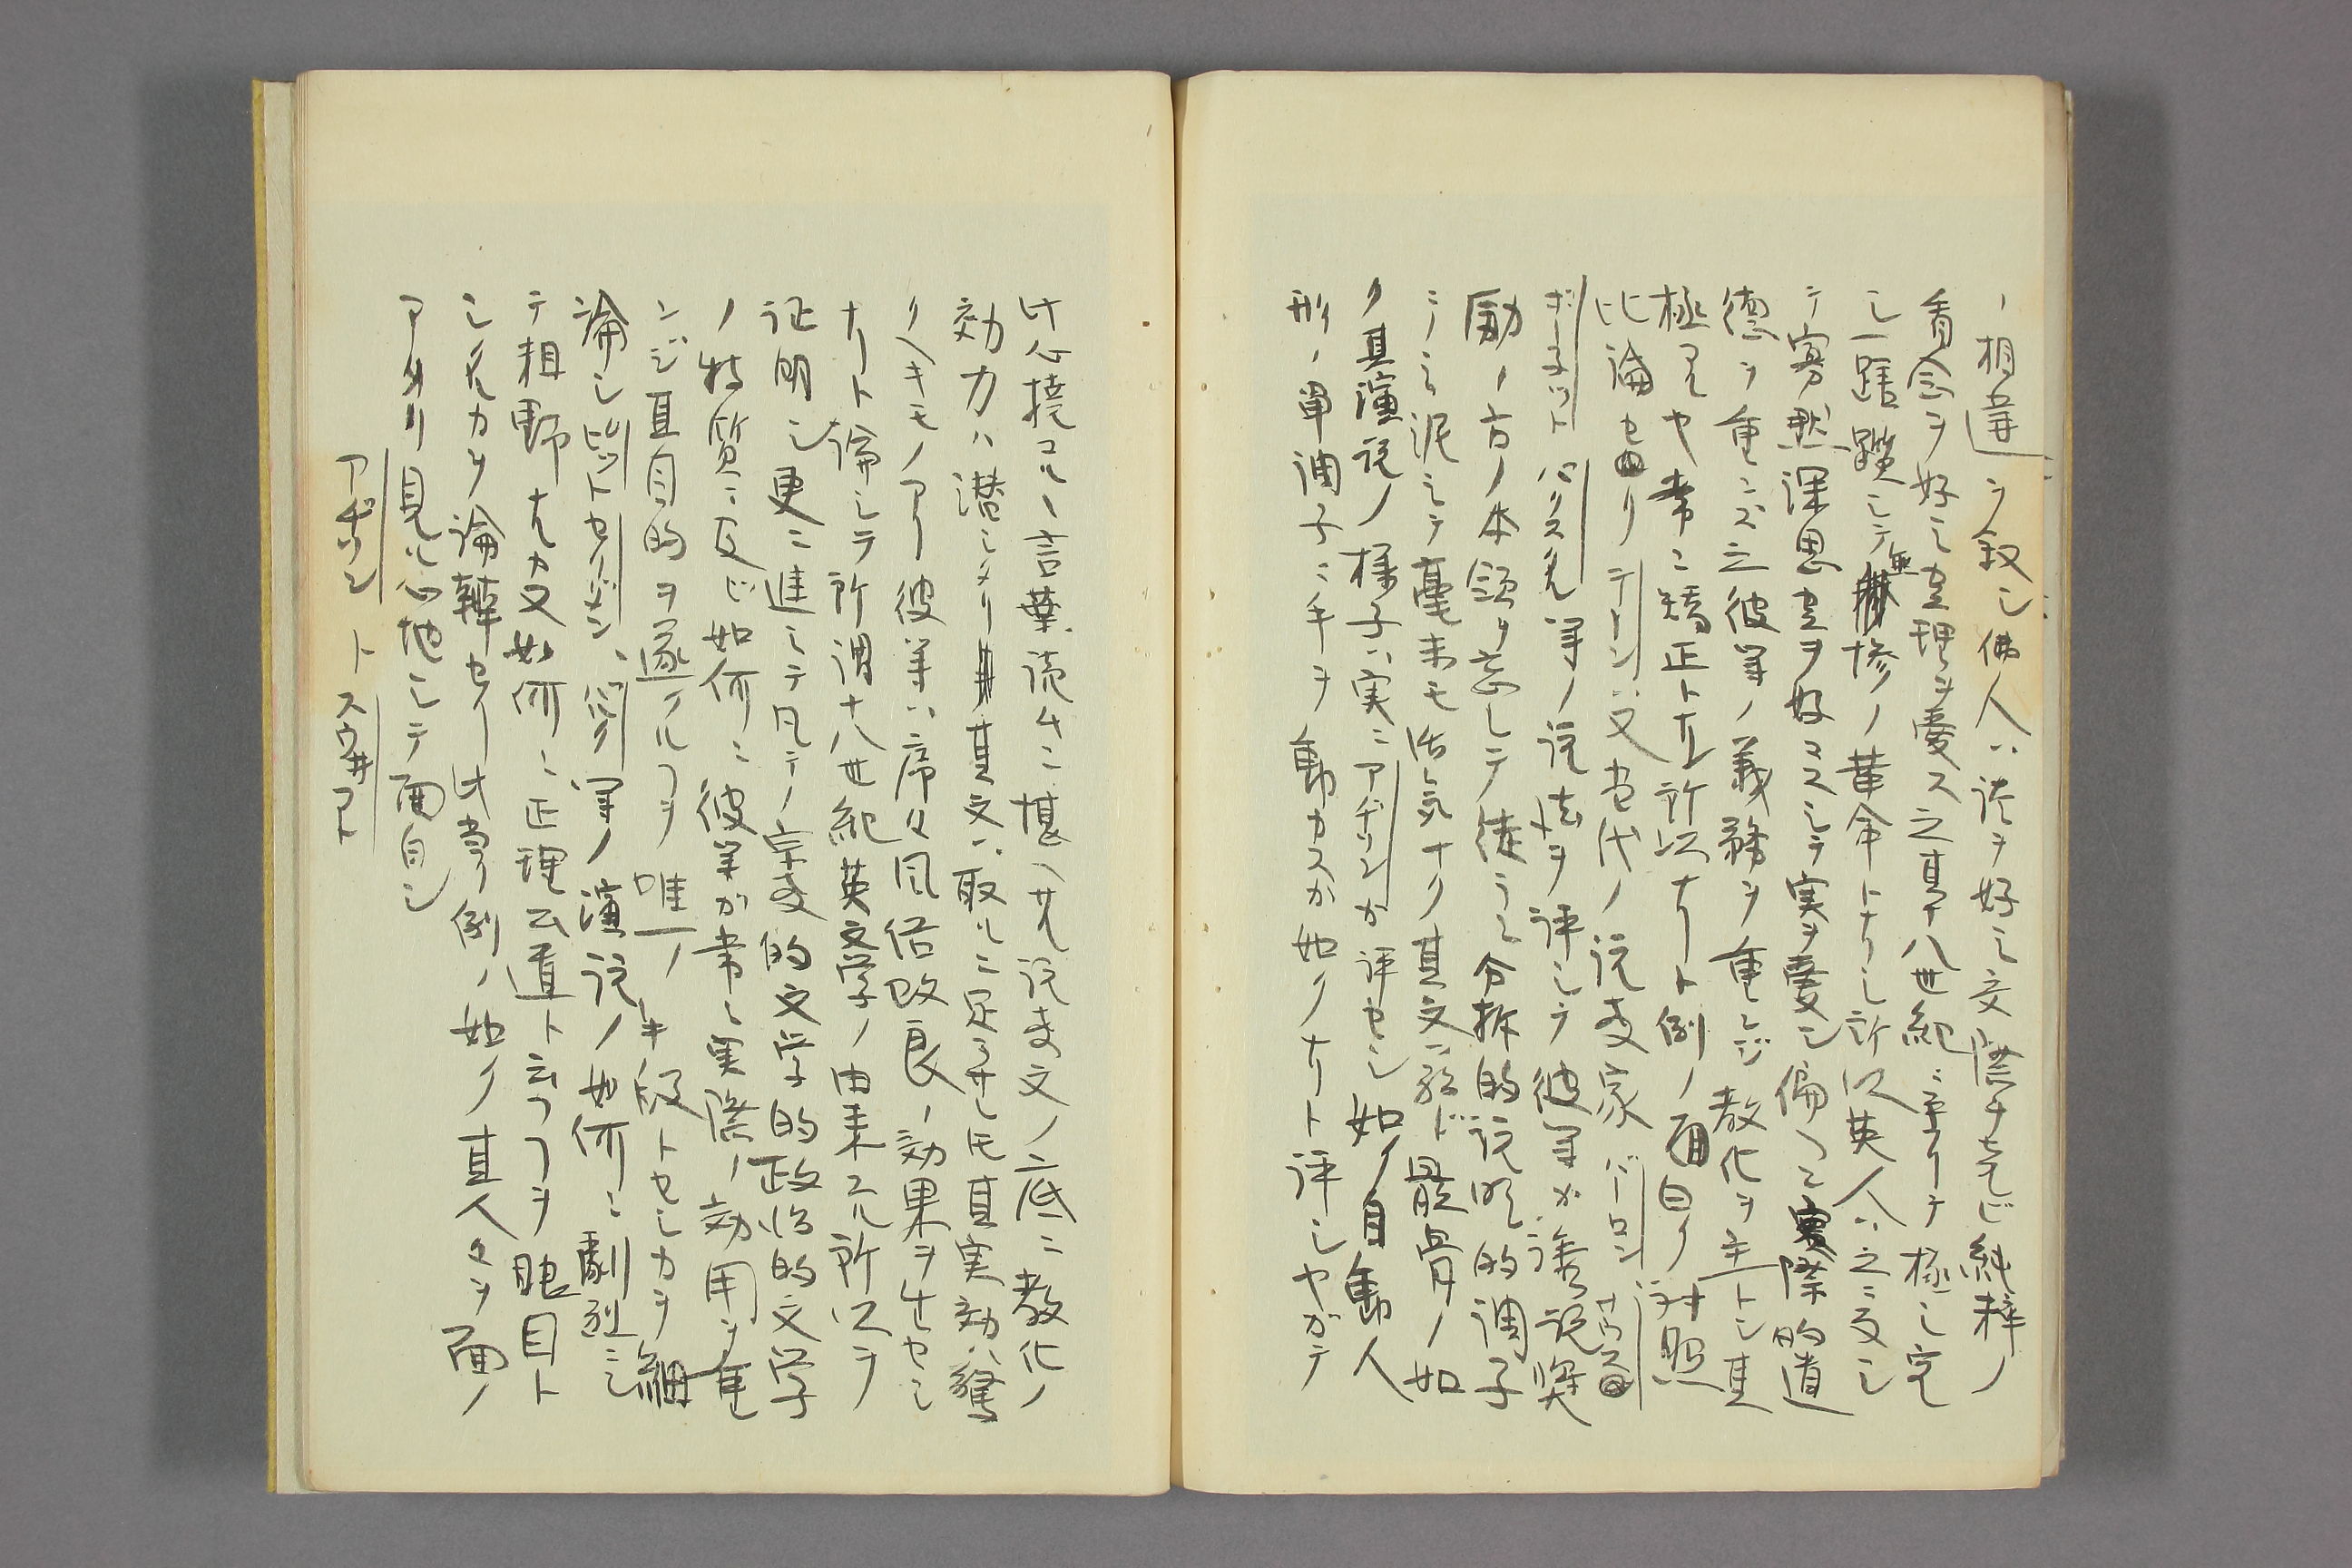 ノ相違ヲ叙シ佛人ハ談ヲ好ミ交際ヲ尊ビ純粋ノ
看念ヲ好ミ空理ヲ愛ス之其十八世紀ニ於テ極ミ完
シ一蹉躓シテ無惨ノ革命トナリシ所以英人ハ之ニ反シ
テ寡黙深思空ヲ好マスシテ実ヲ愛シ偏ヘニ実際的道
徳ヲ重ンズ之彼等ノ義務ヲ重ンジ教化ヲ主トシ其
極マルヤ常ニ矯正トナル所以ナリト例ノ面白ク対照
比論セリテーンハ又当代ノ説教家バーロン
ギーネット パリス先等ノ説法ヲ評シテ彼等カ誘説奨
励ノ方ノ本領ヲ忘レテ徒ラニ分拆的説明的調子
ニノミ泥ミテ毫末モ活気ナク其文ハ殆ド骸骨ノ如
ク其演説ノ様子ハ実ニアヂソンカ評セシ如ク自動人
形ノ単調子ニキヲ動カスカ如クナリト評シヤガテ
此心持コレノ言葉読ムニ堪ヘサル説教文ノ底ニ教化ノ
効力ハ潜ミメリ其文ハ取ルニ足ラサレモ其実効ハ驚
クヘキモノアリ彼等ハ席々風俗改良ノ効果ヲ生セシ
ナリト論シテ所謂十八世紀英文学ノ由来スル所以ヲ
証明シ更ニ進ミテ凡テノ宗教的文学的政治的文学
ノ特質ニ及ビ如何ニ彼等が常ニ実際ノ効用ヲ重
ンジ直自的ヲ遂クルヿヲ唯一ノ手段トセシカヲ細
論シピットセリダン、バーク等ノ演説ノ如何ニ劇烈ニシ
テ粗野ナルカ又如何ニ正理公道ト云フヿヲ眼目ト
シタルカヲ論辯セリ此等ノ例ノ如ク其人々ヲ面ノ
アタリ見ル心地シテ面白シ
アヂソン ト スウ井フト